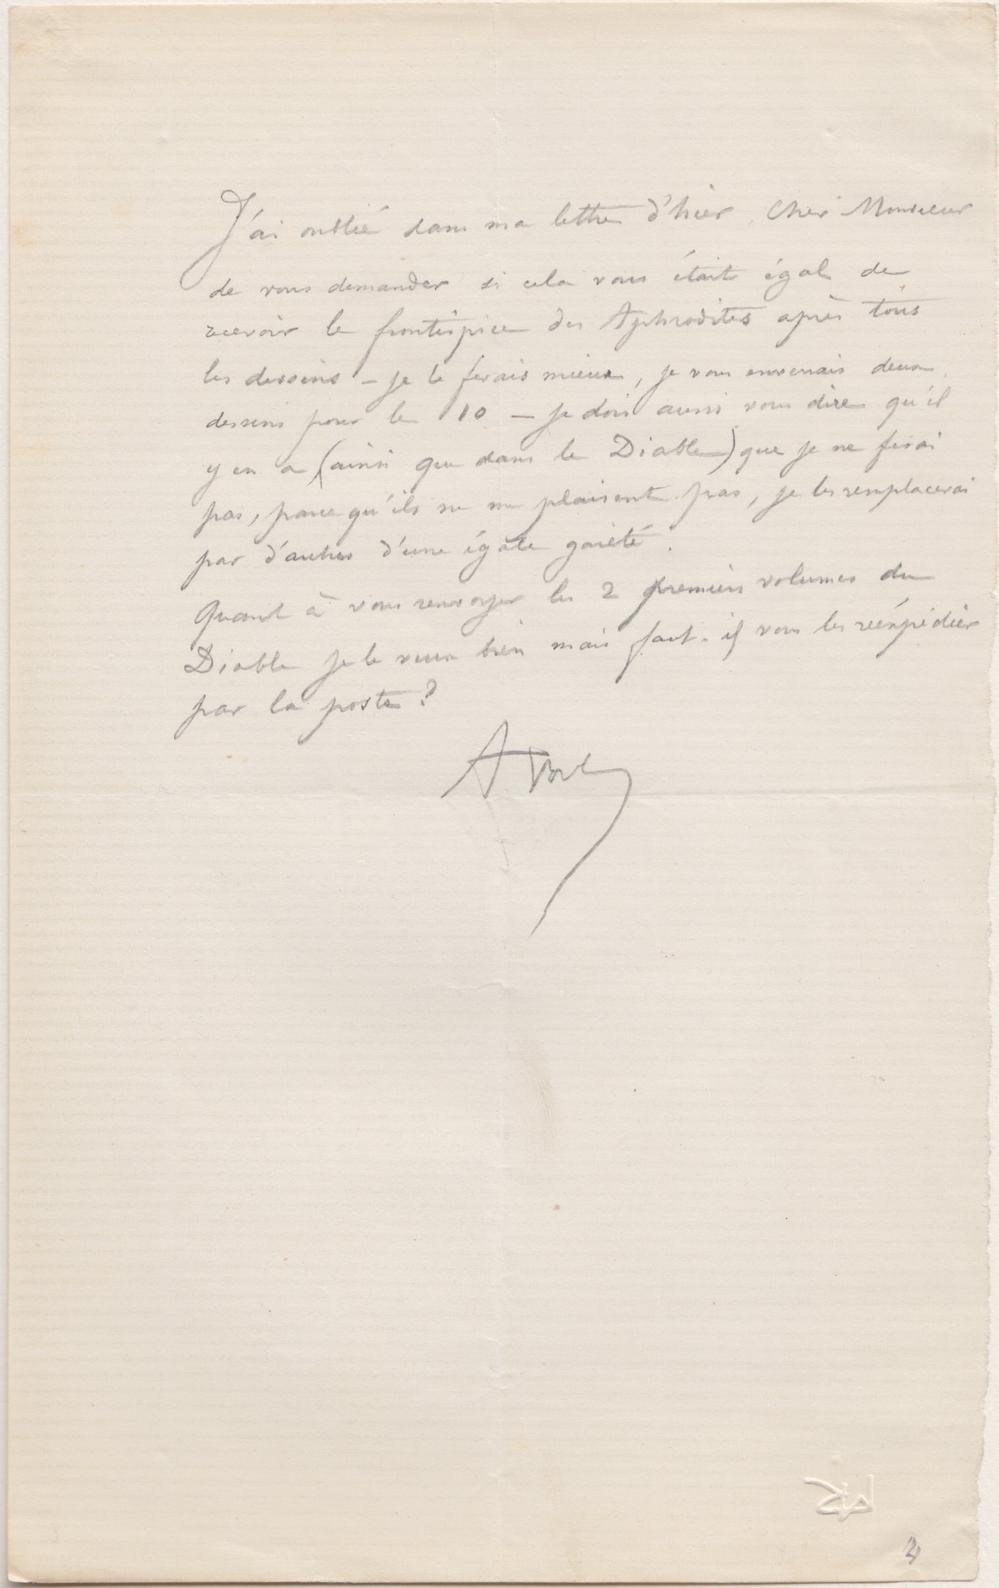 J'ai oublié dans ma lettre d'hier, Cher Monsieur
de vous demander si cela vous était égal de
recevoir le frontispice des Aphrodites après tous
les dessins – je le ferais mieux, je vous enverrais deux
dessins pour le 10 – je dois aussi vous dire qu'il
y en a (ainsi que dans le Diable) que je ne ferai
pas, parce qu'ils ne me plaisent pas, je les remplacerai
par d'autres d'une égale gaieté.
Quant à vous renvoyer les 2 premiers volumes du
Diable je le veux bien mais faut-il vous les réexpédier
par la poste ?